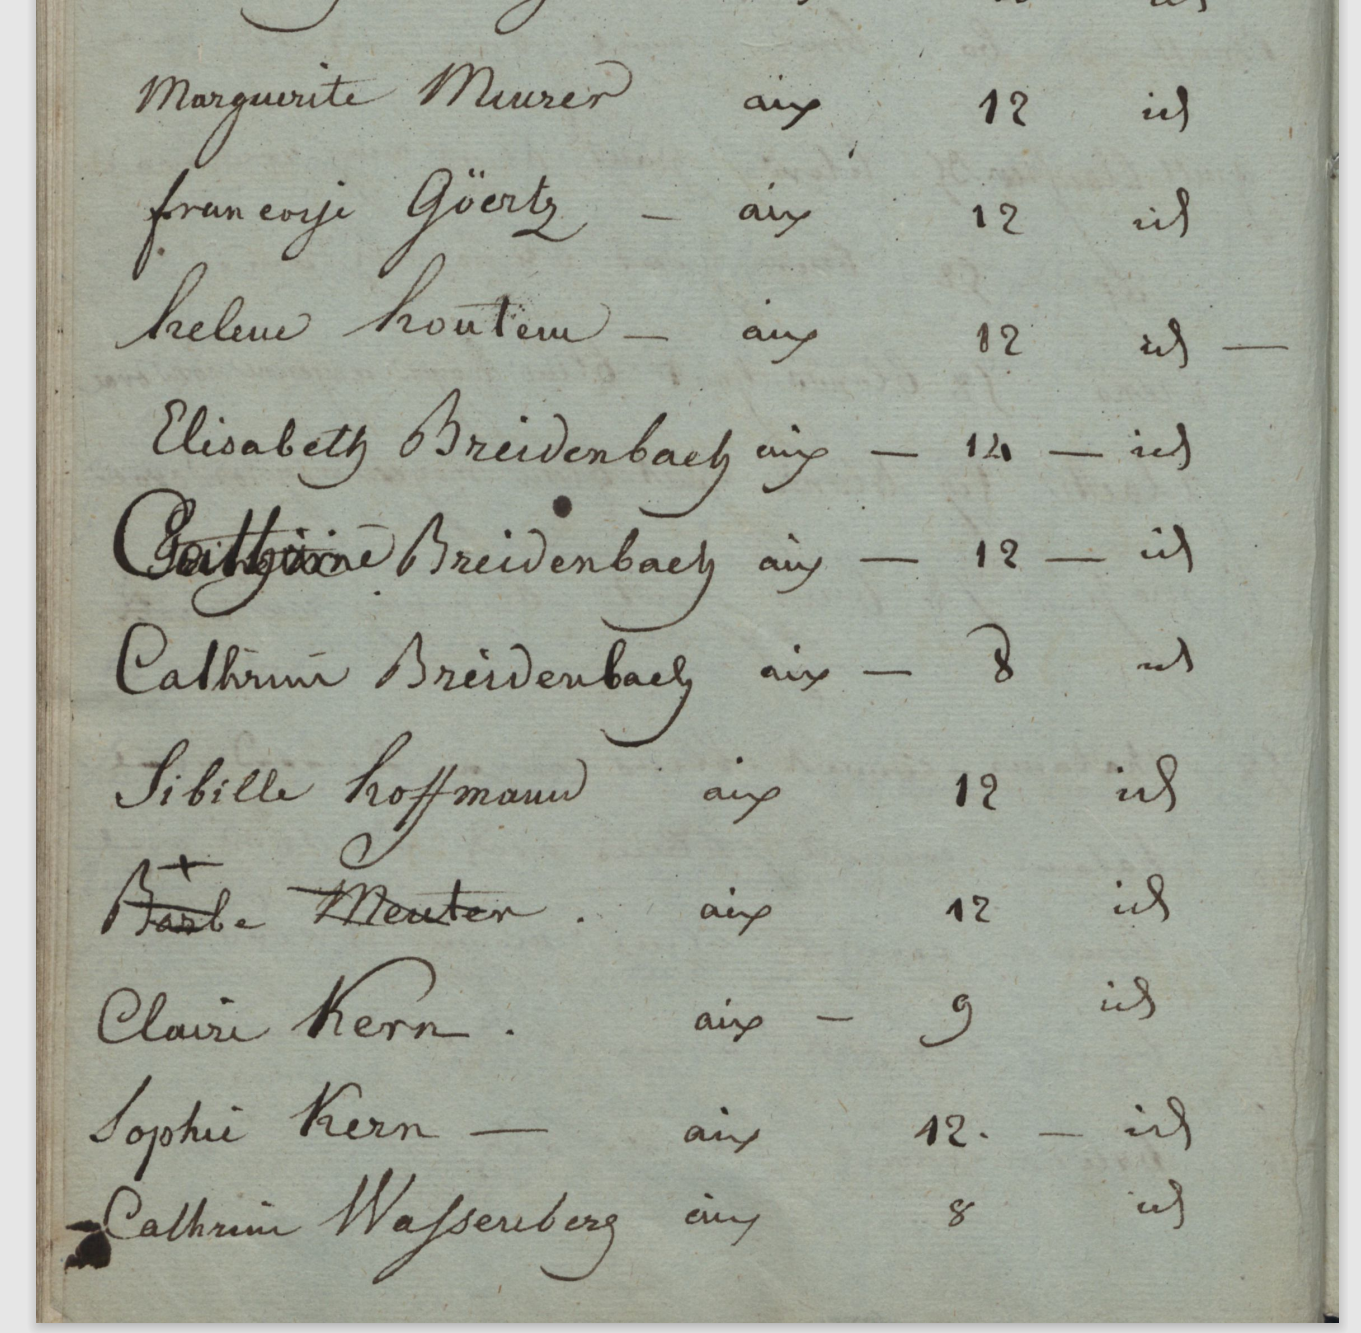 Marguerite Meurer aix 12 id
francoise Göertz — aix 12 id
helene houtem — aix 12 id —
Elisabeth Breidenbach aix — 14 — id
Breidenbach aix — 12 — id
Cathrin Breidenbach aix — 8 id
Sibille hoffmann aix 12 id
+
Barbe Meuter . aix 12 id
Claire Kern . aix — 9 id
Sophie Kern — aix 12. — id
Cathrin Wassenberg aix 8 id